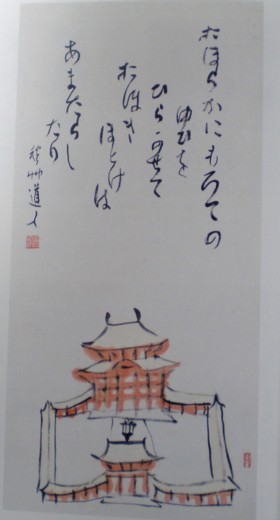 おほらかにもろての
ゆびを
ひらかせて
おほき
ほとけは
あまたらし
たり
秋艸道人